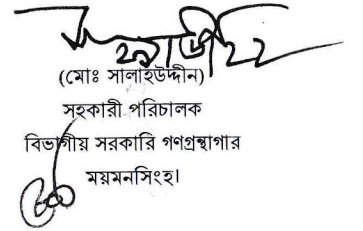 (মোঃ সালাহউদ্দীন)
সহকারী পরিচালক
বিভাগীয় সরকারি গণগ্রন্থাগার
ময়মনসিংহ।